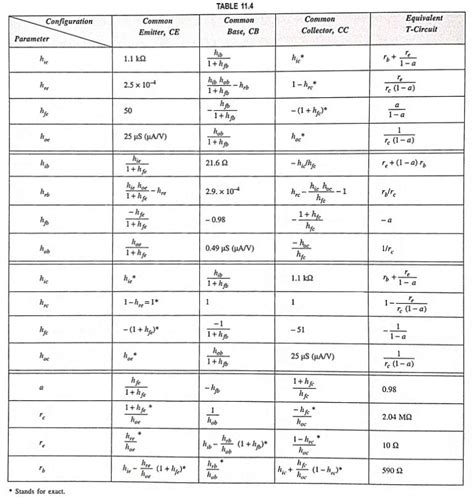 TABLE 11.4
Configuration Parameter | Common Emitter, CE | Common Base, CB | Common Collector, CC | Equivalent T-Circuit
h_ie | 1.1 kΩ | h_ib / (1 + h_fb) | h_ic* | r_b + r_e / (1 – a)
h_re | 2.5 × 10⁻⁴ | h_ib h_ob / (1 + h_fb) – h_rb | 1 – h_rc* | r_e / (r_c (1 – a))
h_fe | 50 | – h_fb / (1 + h_fb) | – (1 + h_fc)* | a / (1 – a)
h_oe | 25 µS (µA/V) | h_ob / (1 + h_fb) | h_oc* | 1 / (r_c (1 – a))
h_ib | h_ie / (1 + h_fe) | 21.6 Ω | – h_ic/h_fc | r_e + (1 – a) r_b
h_rb | h_ie h_oe / (1 + h_fe) – h_re | 2.9. × 10⁻⁴ | h_rc – h_ic h_oc / h_fc – 1 | r_b/r_c
h_fb | – h_fe / (1 + h_fe) | – 0.98 | – (1 + h_fc) / h_fc | – a
h_ob | h_oe / (1 + h_fe) | 0.49 µS (µA/V) | – h_oc / h_fc | 1/r_c
h_ic | h_ie* | h_ib / (1 + h_fb) | 1.1 kΩ | r_b + r_e / (1 – a)
h_rc | 1 – h_re = 1* | 1 | 1 | 1 – r_e / (r_c (1 – a))
h_fc | – (1 + h_fe)* | –1 / (1 + h_fb) | – 51 | – 1 / (1 – a)
h_oc | h_oe* | h_ob / (1 + h_fb) | 25 µS (µA/V) | 1 / (r_c (1 – a))
a | h_fe / (1 + h_fe) | – h_fb | (1 + h_fc) / h_fc | 0.98
r_c | (1 + h_fe)* / h_oe | 1 / h_ob | – h_fc* / h_oc | 2.04 MΩ
r_e | h_re* / h_oe | h_ib – h_rb / h_ob (1 + h_fb)* | (1 – h_rc)* / h_oc | 10 Ω
r_b | h_ie – h_re / h_oe (1 + h_fe)* | h_rb* / h_ob | h_ic + h_fc / h_oc (1 – h_rc)* | 590 Ω
* Stands for exact.